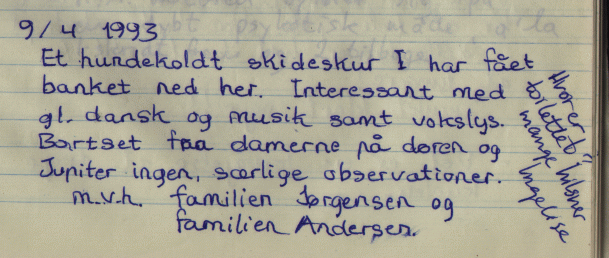 9/4 1993
Et hundekoldt skideskur I har fået
banket ned her. Interessant med
gl. dansk og musik samt vokslys.
Bortset fra damerne på døren og
Jupiter ingen, særlige observationer.
m.v.h. familien Jørgensen og
familien Andersen.
Hvor er
toilettet?
mange hilsner
Ingelise